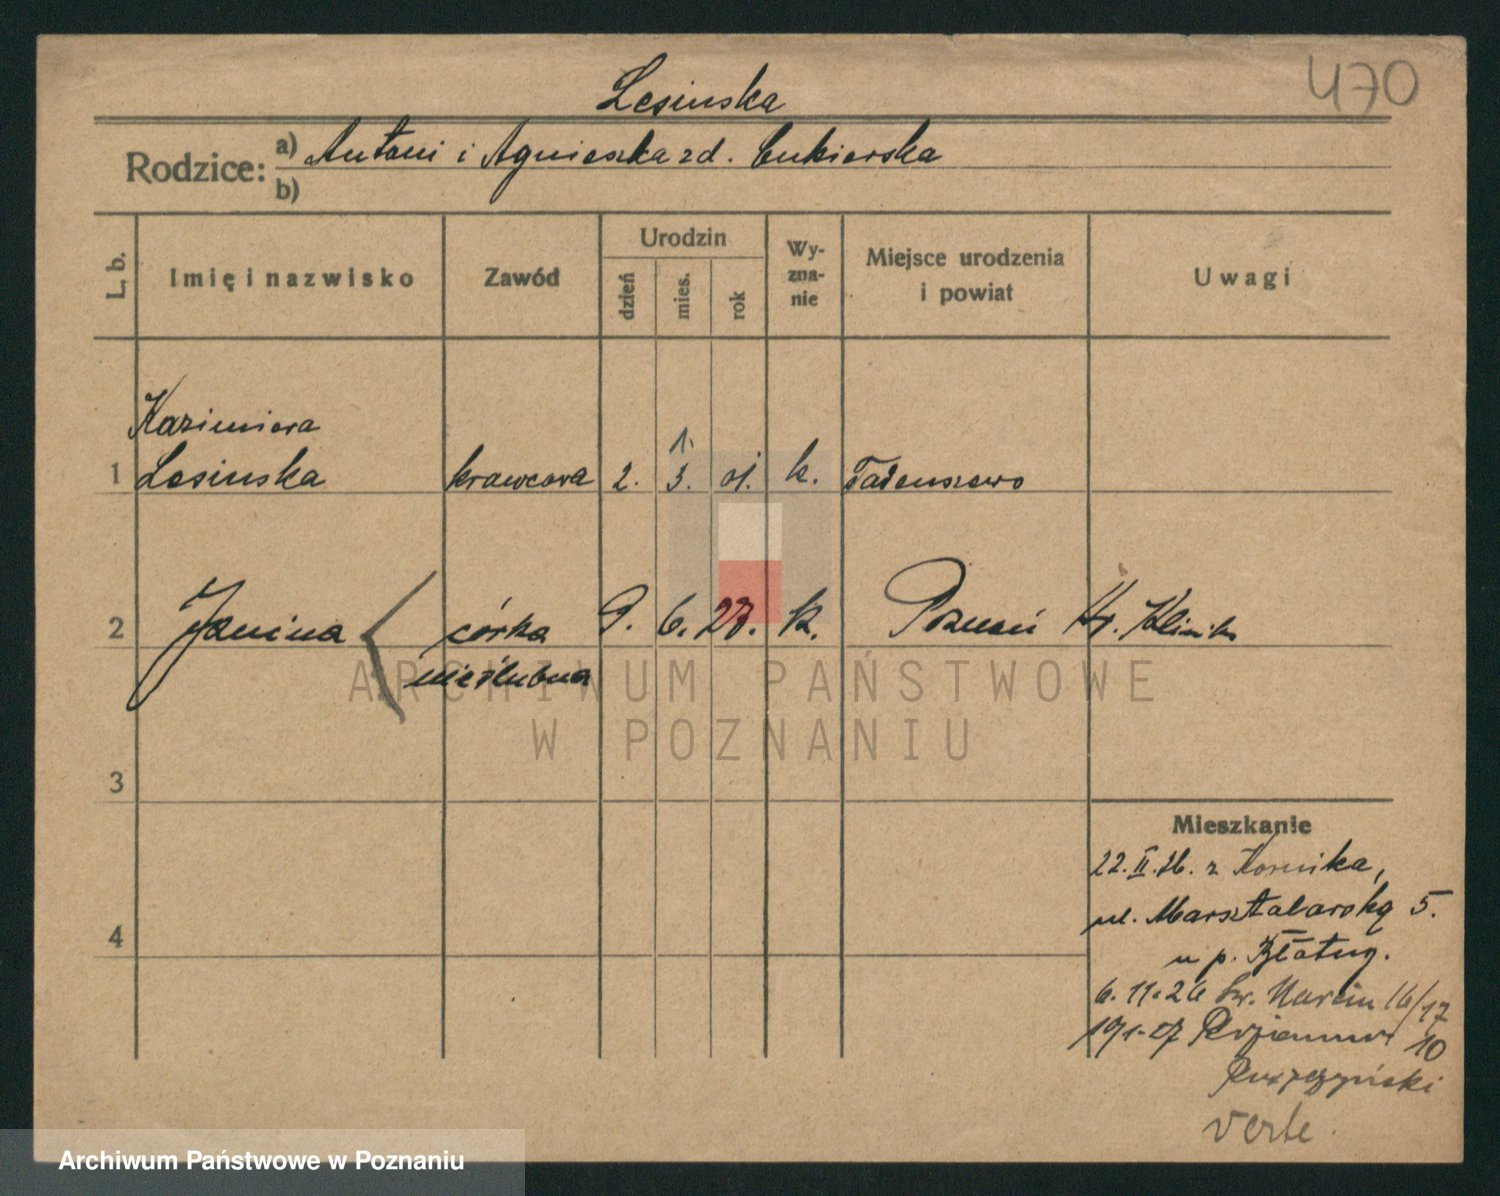 470
Lesinska
Rodzice: a) Antoni i Agnieszka zd. Cukierska
b)
L. b.
Imię i nazwisko
Zawód
Urodzin
dzień
mies.
rok
Wy-
zna-
nie
Miejsce urodzenia
i powiat
Uwagi
Kazimiera
1.
1 Lesinska krawcowa 2. 3. 01. k. Tadeuszewo
2 Janina córka 9. 6. 27. k. Poznań Kr. Klinika
nieślubna
ARCHIWUM PAŃSTWOWE
W POZNANIU
3
Mieszkanie
22.II.26. z Kornika,
ul. Marsztalarska 5.
4
u p.
6.11.26 Św. Marcin 16/17
19.1.27 10
verte.
Archiwum Państwowe w Poznaniu